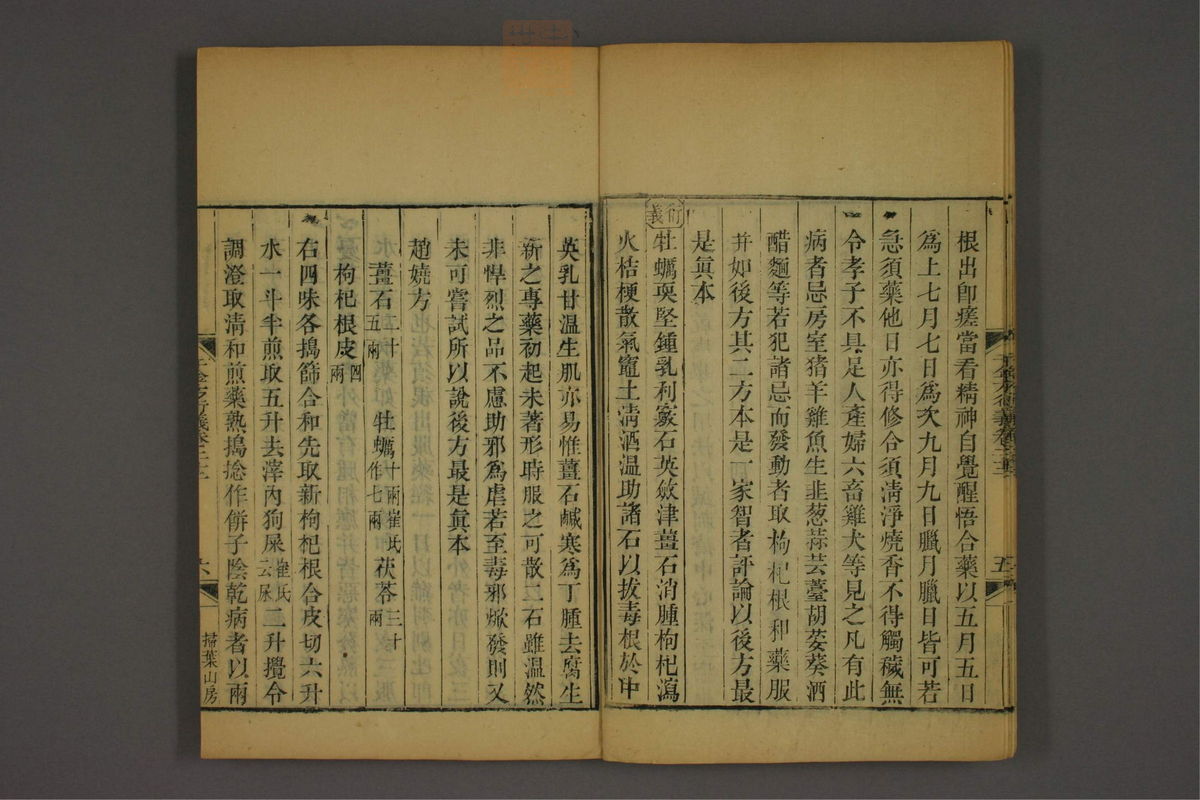 根出卽瘥當看精神自覺醒悟合藥以五月五日
爲上七月七日爲次九月九日臘月臘日皆可若
急須藥他日亦得修合須淸淨燒香不得觸穢無
令孝子不具足人產婦六畜雞犬等見之凡有此
病者忌房室猪羊雞魚生韭葱蒜芸薹胡荽葵酒
醋麵等若犯諸忌而發動者取枸杞根和藥服
并如後方其二方本是一家智者評論以後方最
是眞本
衍義
牡蠣耎堅鍾乳利竅石英斂津薑石消腫枸杞瀉
火桔梗散氣竈土淸酒溫助諸石以拔毒根於中
五
英乳甘溫生肌亦易惟薑石鹹寒爲丁腫去腐生
新之專藥初起未著形時服之可散二石雖溫然
非悍烈之品不慮助邪爲虐若至毒邪焮發則又
未可嘗試所以說後方最是眞本
趙嬈方
薑石二十五兩 牡蠣十兩崔氏作七兩 茯苓三十兩
枸杞根皮四兩
右四味各搗篩合和先取新枸杞根合皮切六升
水一斗半煎取五升去滓內狗屎崔氏云尿二升攪令
調澄取淸和煎藥熟搗捻作餅子陰乾病者以兩
千金方衍義卷二十二
六
掃葉山房